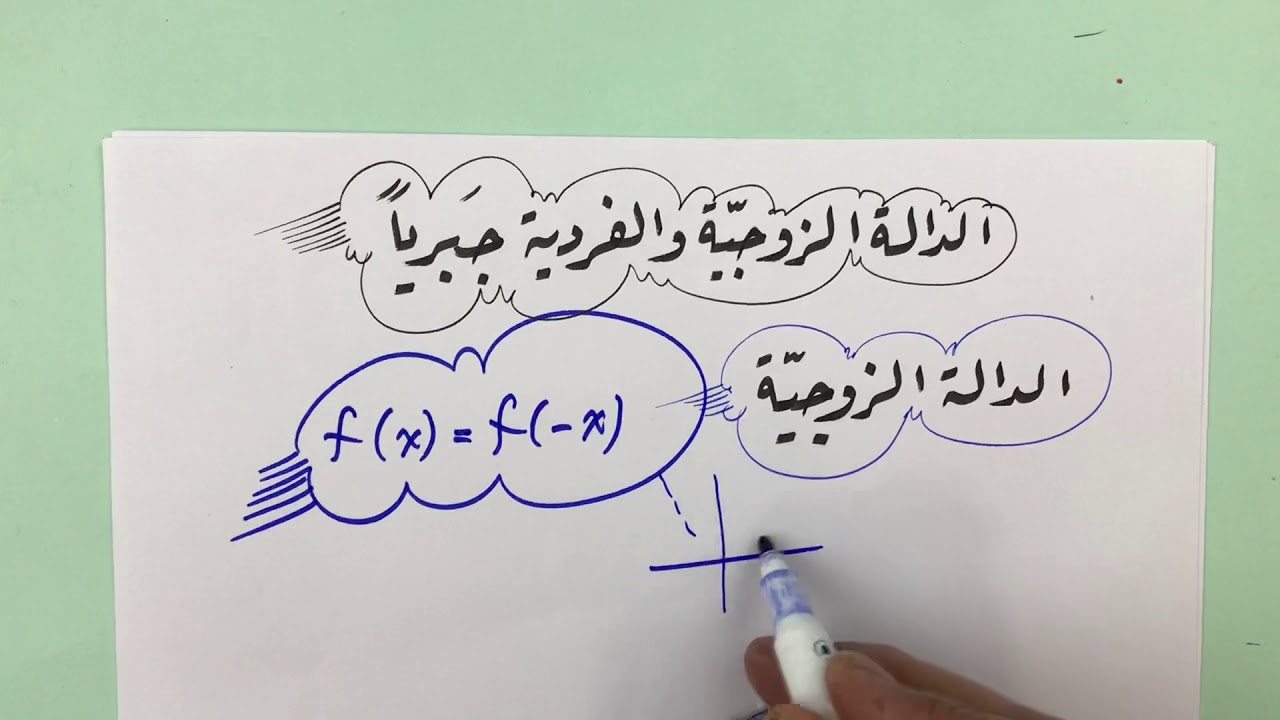 الدالة الزوجيّة والفردية جَبرياً
الدالة الزوجيّة
f(x) = f(-x)